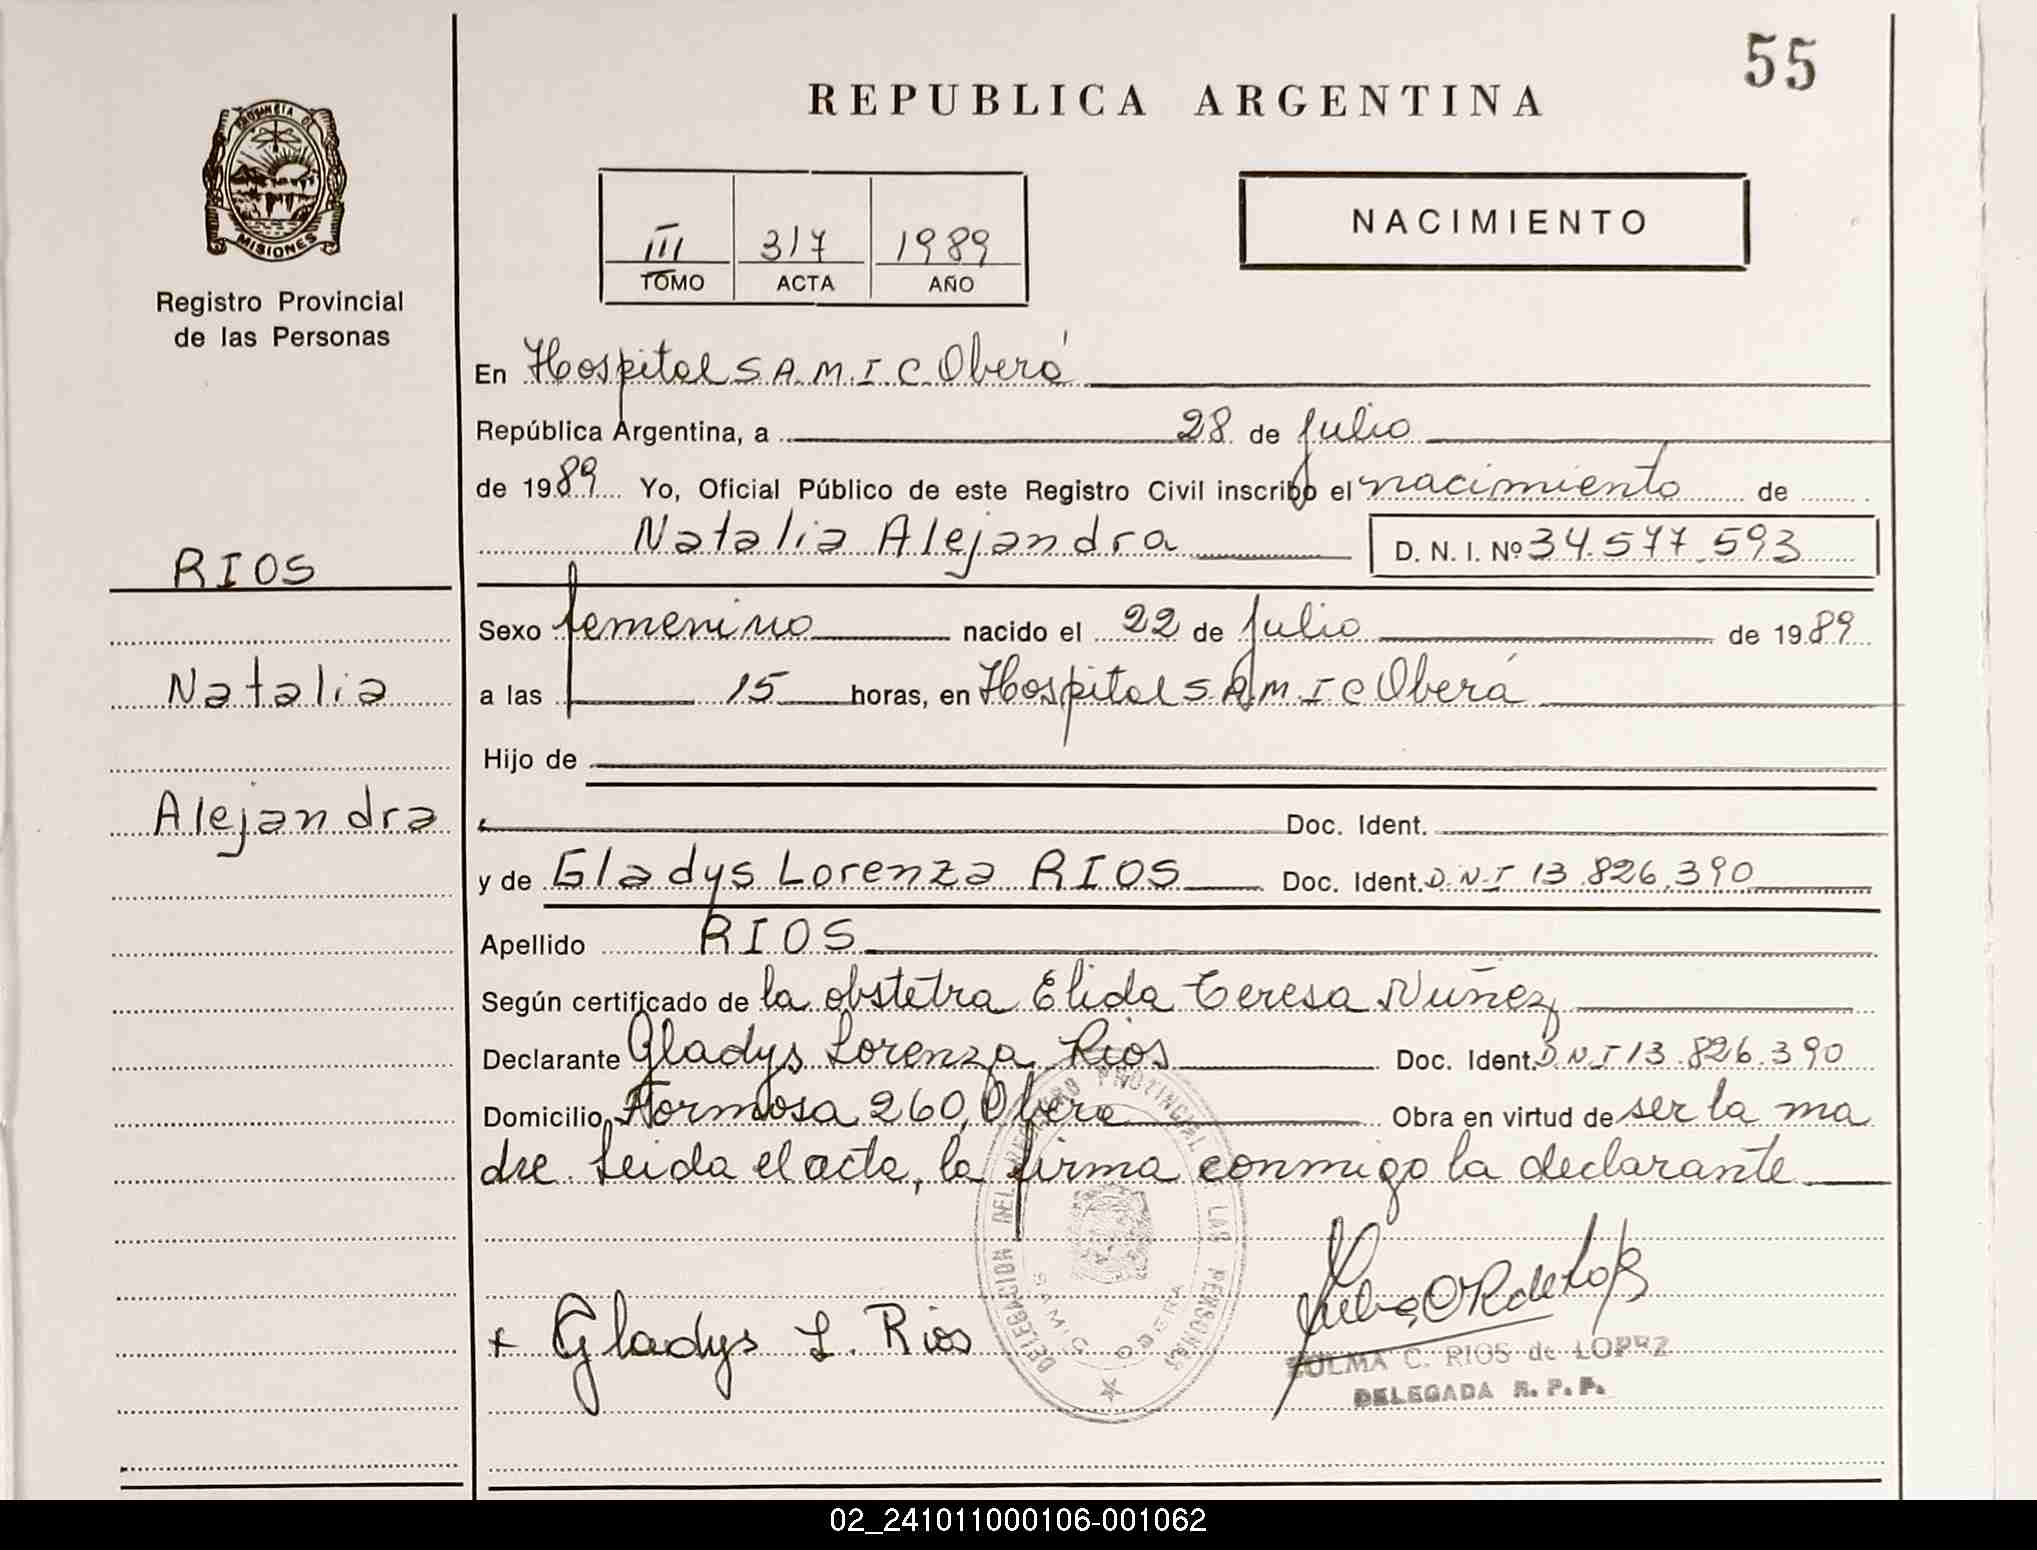 55
REPUBLICA ARGENTINA
PROVINCIA DE
MISIONES
Registro Provincial
de las Personas
III 317 1989
TOMO ACTA AÑO
NACIMIENTO
En Hospital S.A.M.I.C Oberá
República Argentina, a 28 de julio
de 1989 Yo, Oficial Público de este Registro Civil inscribo el nacimiento de
Natalia Alejandra D. N. I. Nº 34.577.593
RIOS
Natalia
Alejandra
Sexo femenino nacido el 22 de julio de 1989
a las 15 horas, en Hospital S.A.M.I C Oberá
Hijo de
Doc. Ident.
y de Gladys Lorenza RIOS Doc. Ident. D.N.I 13.826.390
Apellido RIOS
Según certificado de la obstetra Elida Teresa Nuñez
Declarante Gladys Lorenza Rios Doc. Ident. D.N.I 13.826.390
Domicilio Formosa 260, Obera Obra en virtud de ser la ma
dre. Leida el acta, la firma conmigo la declarante
+ Gladys L. Rios
DELEGACION DEL REGISTRO PROVINCIAL DE LAS PERSONAS
SAMIC OBERA
ZULMA C. RIOS de LOPEZ
DELEGADA R. P. P.
02_241011000106-001062